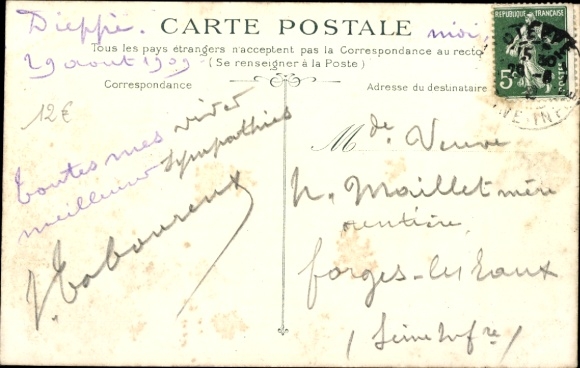 Dieppe. CARTE POSTALE
Tous les pays étrangers n'acceptent pas la Correspondance au recto
29 août 1909 (Se renseigner à la Poste)
Correspondance
Adresse du destinataire
REPUBLIQUE FRANÇAISE
5c
12€
toutes mes
meilleures sympathies
J. Laboureux
Mde Veuve
h. Maillet mère
rentière
forges-les-Eaux
(Seine Infre)